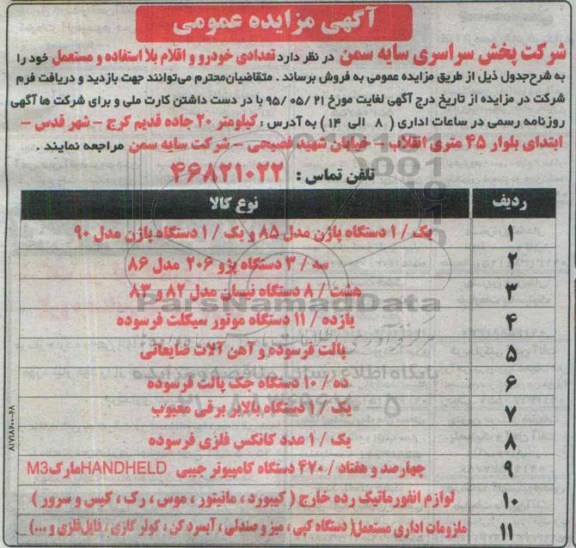 آگهی مزایده عمومی
شرکت پخش سراسری سایه سمن در نظر دارد تعدادی خودرو و اقلام بلا استفاده و مستعمل خود را
به شرح جدول ذیل از طریق مزایده عمومی به فروش برساند . متقاضیان محترم می توانند جهت بازدید و دریافت فرم
شرکت در مزایده از تاریخ درج آگهی لغایت مورخ ۹۵/۰۵/۲۱ با در دست داشتن کارت ملی و برای شرکت ها آگهی
روزنامه رسمی در ساعات اداری ( ۸ الی ۱۴ ) به آدرس : کیلومتر ۲۰ جاده قدیم کرج – شهر قدس –
ابتدای بلوار ۴۵ متری انقلاب – خیابان شهید فصیحی – شرکت سایه سمن مراجعه نمایند .
تلفن تماس : ۴۶۸۲۱۰۲۲
ردیف نوع کالا
۱ یک / ۱ دستگاه پاژن مدل ۸۵ و یک / ۱ دستگاه پاژن مدل ۹۰
۲ سه / ۳ دستگاه پژو ۲۰۶ مدل ۸۶
۳ هشت / ۸ دستگاه نیسان مدل ۸۲ و ۸۳
۴ یازده / ۱۱ دستگاه موتور سیکلت فرسوده
۵ پالت فرسوده و آهن آلات ضایعاتی
۶ ده / ۱۰ دستگاه جک پالت فرسوده
۷ یک / ۱ دستگاه بالابر برقی معیوب
۸ یک / ۱ عدد کانکس فلزی فرسوده
۹ چهارصد و هفتاد / ۴۷۰ دستگاه کامپیوتر جیبی HANDHELD مارک M3
۱۰ لوازم انفورماتیک رده خارج ( کیبورد ، مانیتور ، موس ، رک ، کیس و سرور )
۱۱ ملزومات اداری مستعمل( دستگاه کپی ، میز و صندلی ، آبسرد کن ، کولر گازی ، فایل فلزی و ...)
ParsNamadData